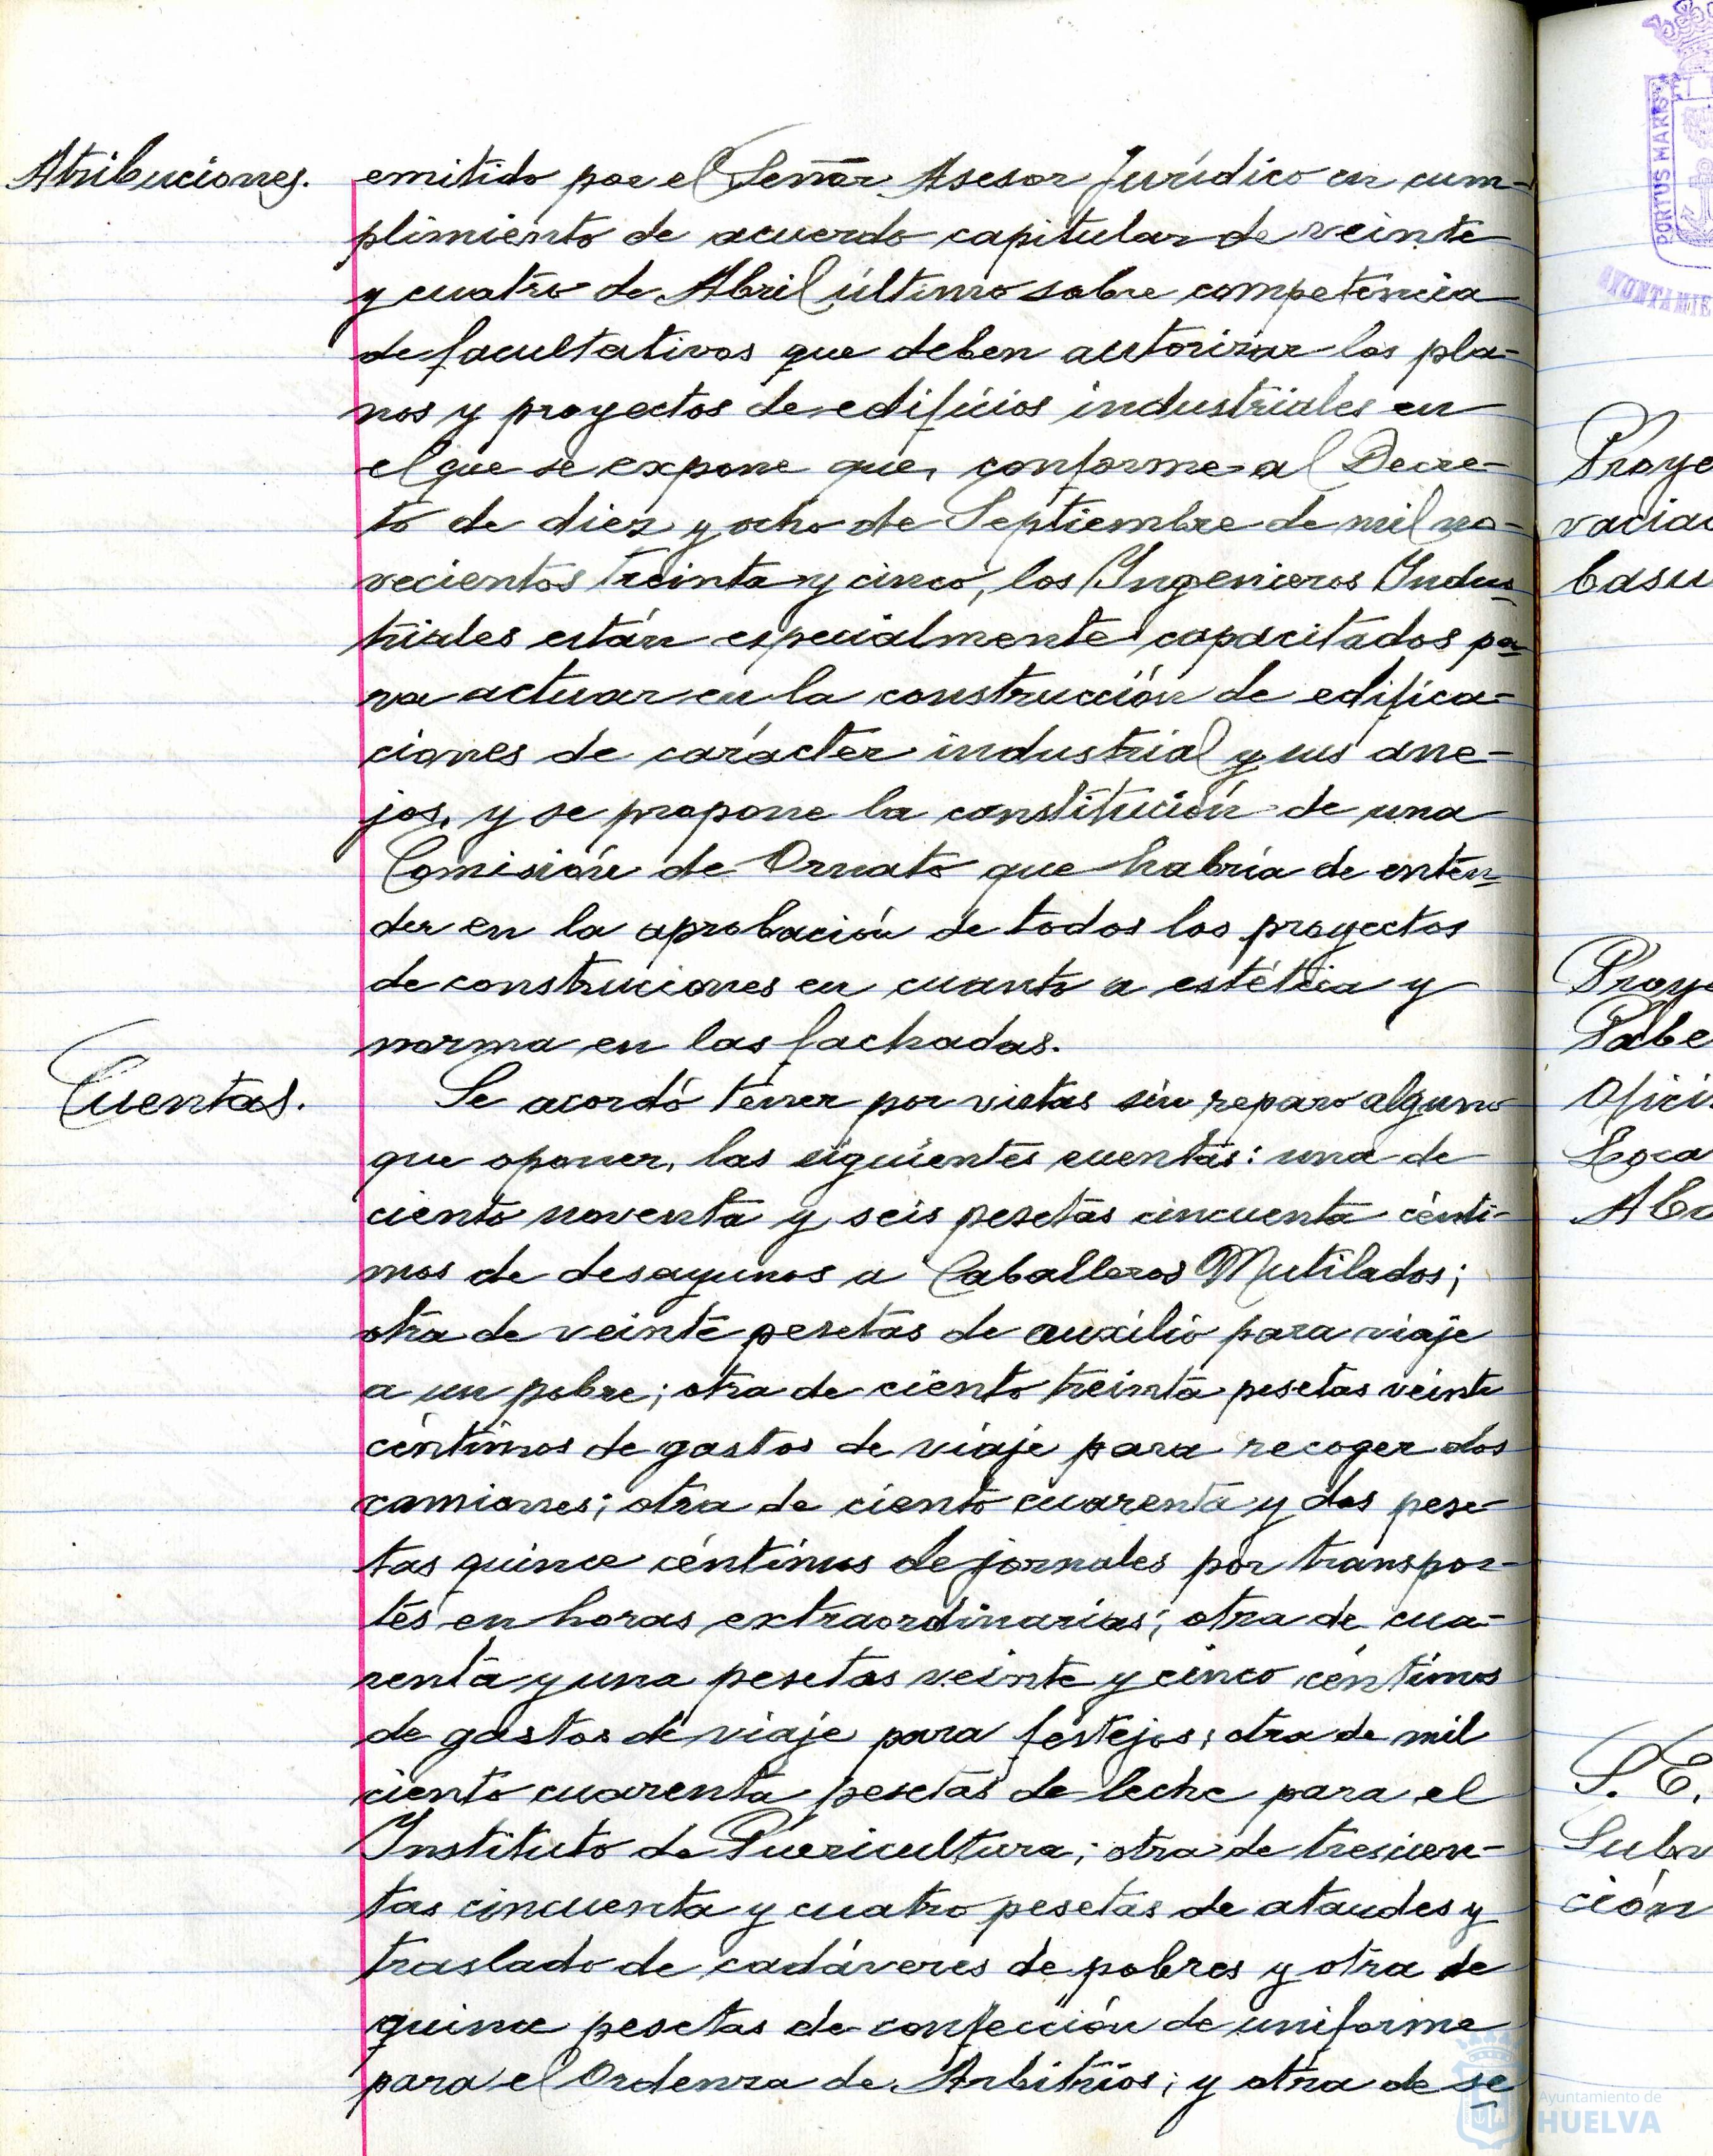 Atribuciones. emitido por el Señor Asesor Jurídico en cum-
plimiento de acuerdo capitular de veinte
y cuatro de Abril último sobre competencia
de facultativos que deben autorizar los pla-
nos y proyectos de edificios industriales en
el que se expone que, conforme al Decre-
to de diez y ocho de Septiembre de mil no-
vecientos treinta y cinco, los Ingenieros Indus-
triales están especialmente capacitados pa-
ra actuar en la construcción de edifica-
ciones de carácter industrial y sus ane-
jos, y se propone la constitución de una
Comisión de Ornato que habría de enten-
der en la aprobación de todos los proyectos
de construciones en cuanto a estética y
norma en las fachadas.
Cuentas. Se acordó tener por vistas sin reparo alguno
que oponer, las siguientes cuentas: una de
ciento noventa y seis pesetas cincuenta cénti-
mos de desayunos a Caballeros Mutilados;
otra de veinte pesetas de auxilio para viaje
a un pobre; otra de ciento treinta pesetas veinte
céntimos de gastos de viaje para recoger dos
camiones; otra de ciento cuarenta y dos pese-
tas quince céntimos de jornales por transpor-
tes en horas extraordinarias; otra de cua-
renta y una pesetas veinte y cinco céntimos
de gastos de viaje para festejos; otra de mil
ciento cuarenta pesetas de leche para el
Instituto de Puericultura; otra de trescien-
tas cincuenta y cuatro pesetas de ataudes y
traslado de cadáveres de pobres y otra de
quince pesetas de confección de uniforme
para el Ordenza de Arbitrios; y otra de se
PORTUS MARIS
AYUNTAMIE
Proye
vacia
basu
Proye
Pabe
Ofici
Loca
Aba
S. E.
Subv
ción
Ayuntamiento de
HUELVA